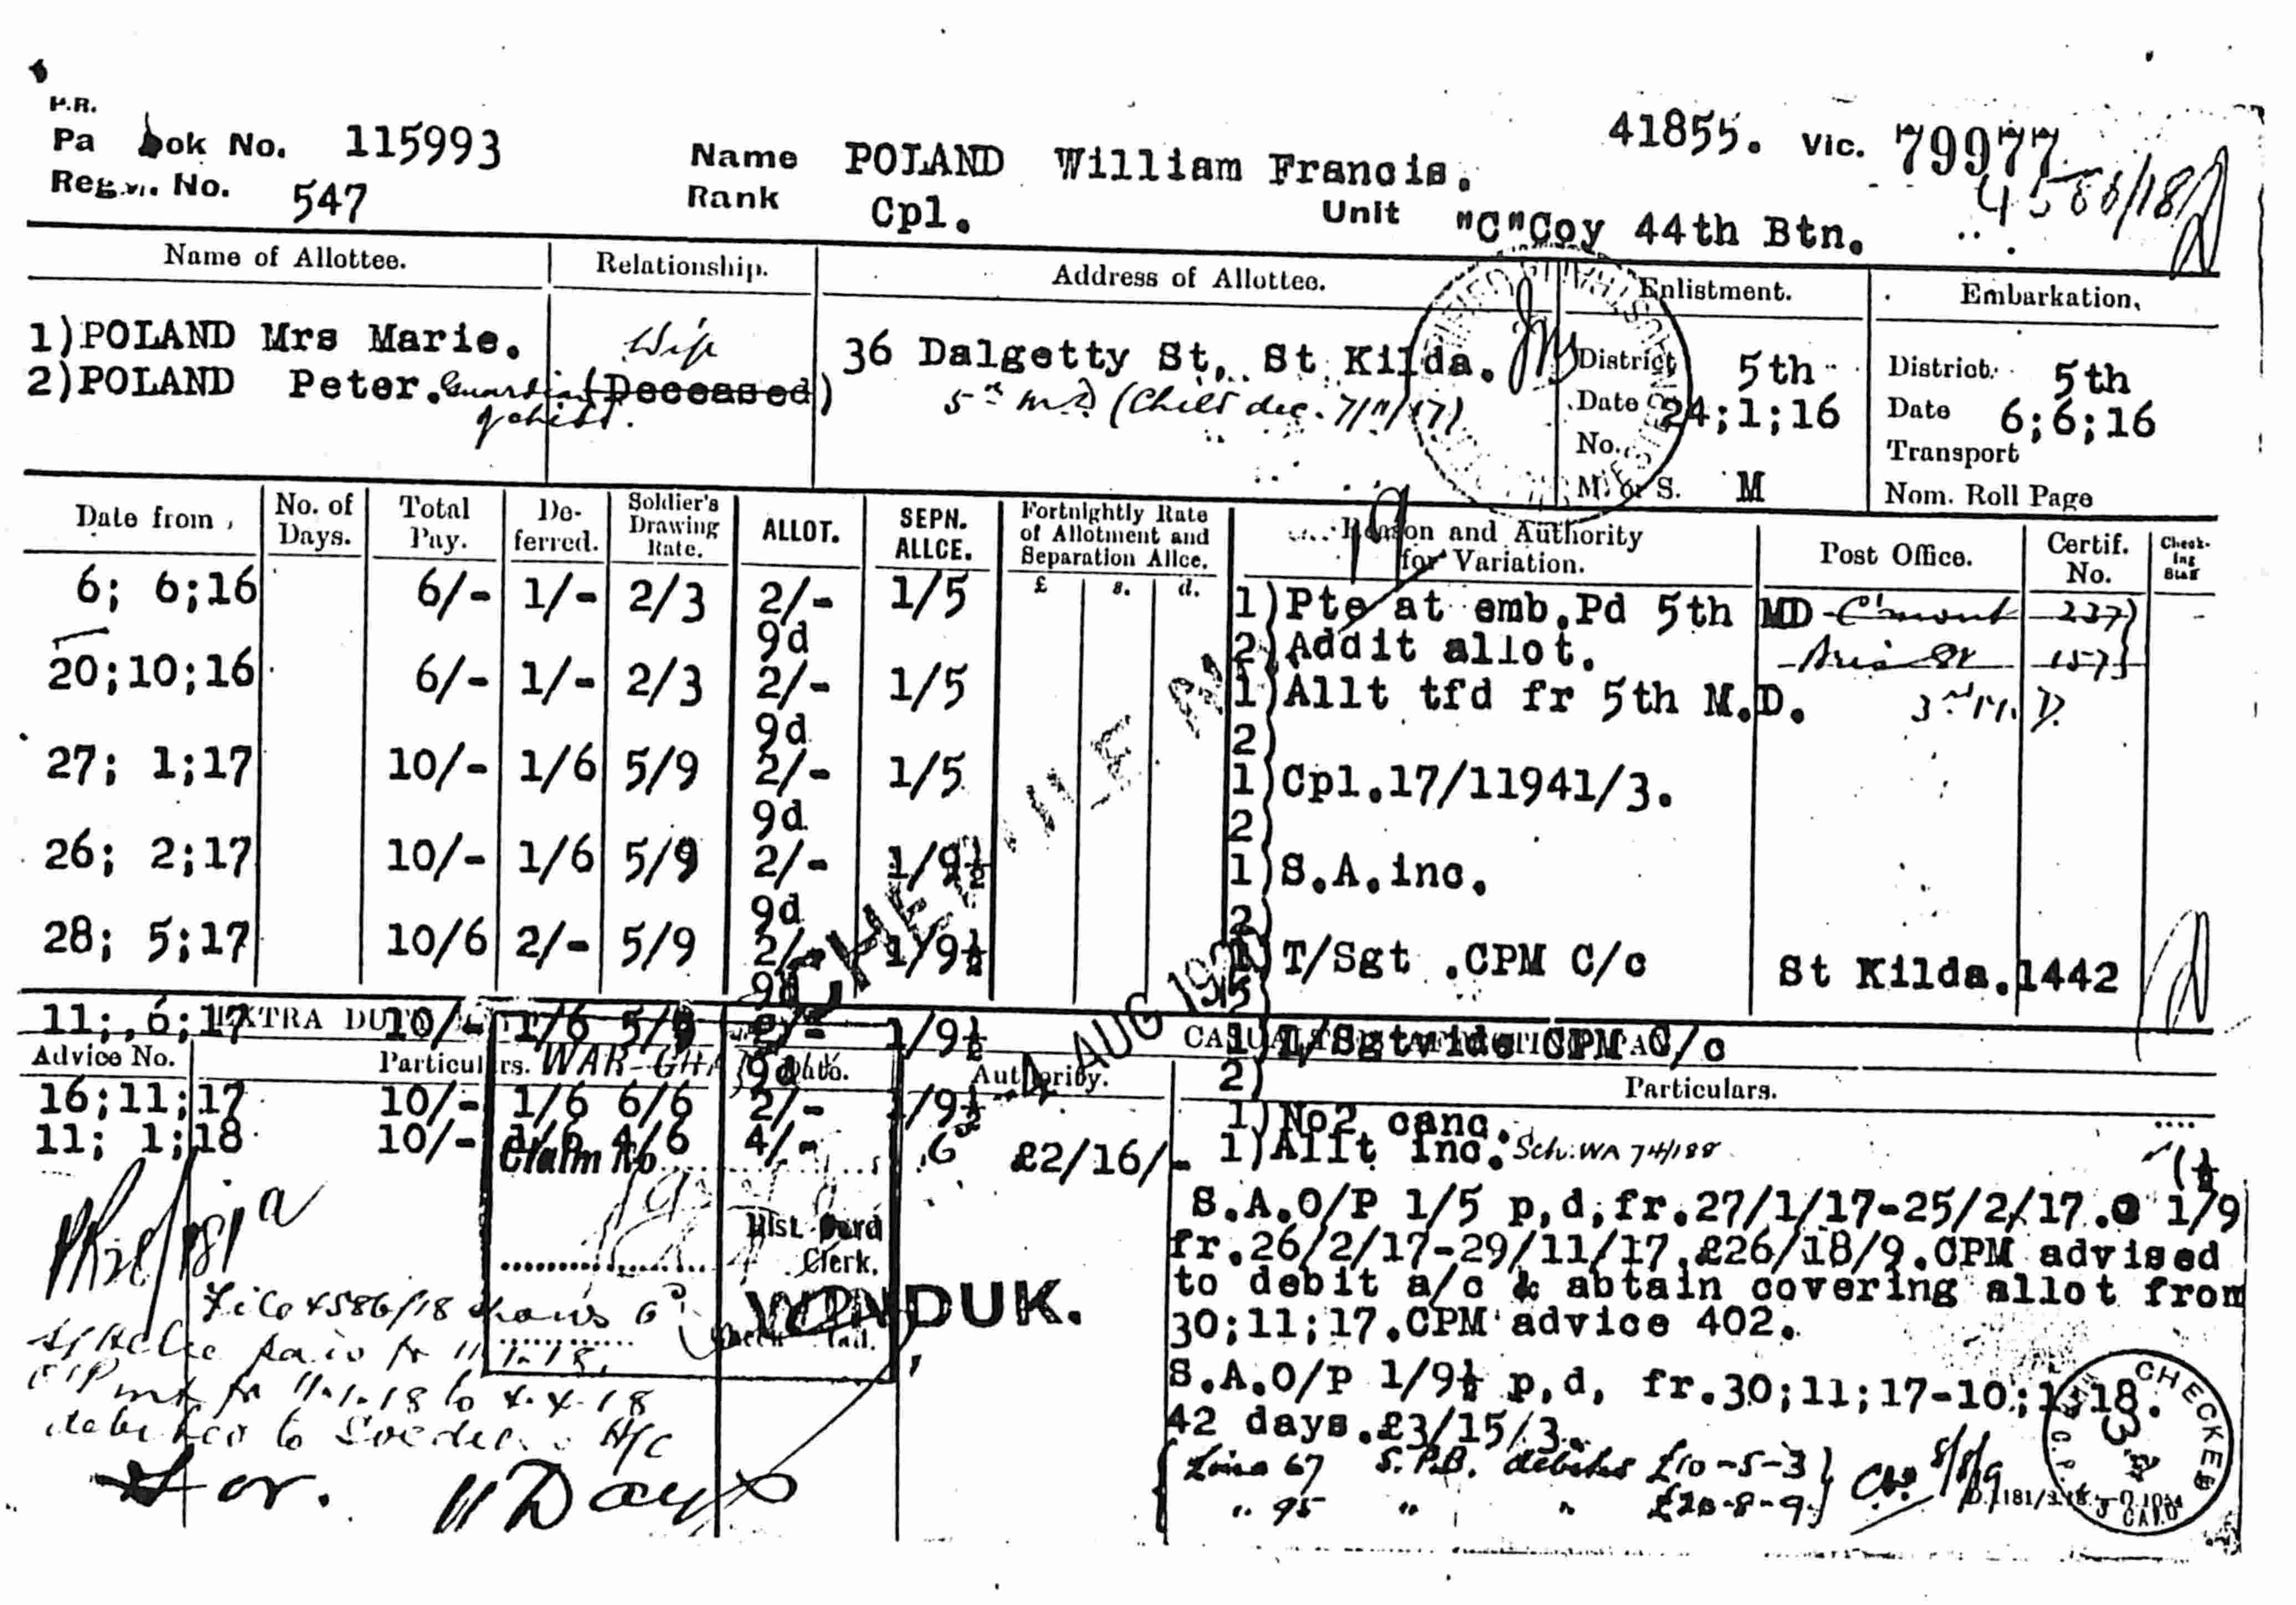 P.R.
Pa book No. 115993 Name POLAND William Francis. 41855. Vic. 79977
Regn. No. 547 Rank Cpl. Unit "C"Coy 44th Btn. 4586/18
Name of Allottee. Relationship. Address of Allottee. Enlistment. Embarkation.
1)POLAND Mrs Marie. Wife 36 Dalgetty St, St Kilda. District 5th District. 5th
2)POLAND Peter. Guardian (Deceased) 5th M.D (Child dec. 7/11/17) Date 24;1;16 Date 6;6;16
of child. No. Transport
M. or S. M Nom. Roll Page
Date from No. of Days. Total Pay. De-ferred. Soldier's Drawing Rate. ALLOT. SEPN. ALLCE. Fortnightly Rate of Allotment and Separation Allce. Reason and Authority for Variation. Post Office. Certif. No. Check-ing Staff
£ s. d.
6; 6;16 6/- 1/- 2/3 2/- 1/5 1)Pte at emb.Pd 5th MD C'mont 237)
9d 2)Addit allot. 157}
20;10;16 6/- 1/- 2/3 2/- 1/5 1)Allt tfd fr 5th M.D. 3rd M. D.
9d 2)
27; 1;17 10/- 1/6 5/9 2/- 1/5 1)Cpl.17/11941/3.
9d 2)
26; 2;17 10/- 1/6 5/9 2/- 1/9½ 1)S.A.inc.
9d 2)
28; 5;17 10/6 2/- 5/9 2/- 1/9½ 1)T/Sgt .CPM C/c St Kilda. 1442
9d 2)
11; 6;17 EXTRA DUTY 10/- 1/6 5/9 2/- 1/9½ 1)T/Sgtvide CPM C/c
Advice No. Particulars. WAR 9d Date. Authority. 2) Particulars.
16;11;17 10/- 1/6 6/6 2/- 1/9½ 1)No2 canc.
11; 1;18 10/- 1/6 4/6 4/- 6d £2/16/- 1)Allt inc. Sch: WA 74/188
Claim No
(½
S.A.O/P 1/5 p,d,fr.27/1/17-25/2/17.@ 1/9
Hist. Card
Clerk.
fr.26/2/17-29/11/17.£26/18/9.CPM advised
to debit a/c & abtain covering allot from
30;11;17.CPM advice 402.
WINDUK.
File 4586/18 shows 6d
paid fr 11.1.18.
fr 11.1.18 to 4.4.18
debited to A/C
S.A.O/P 1/9½ p,d, fr.30;11;17-10;1;18.
42 days.£3/15/3.
Line 67 S.P.B. debited £10-5-3}
" 95 " " £20-8-9}
11 Days
4 AUG 192
CHECKED